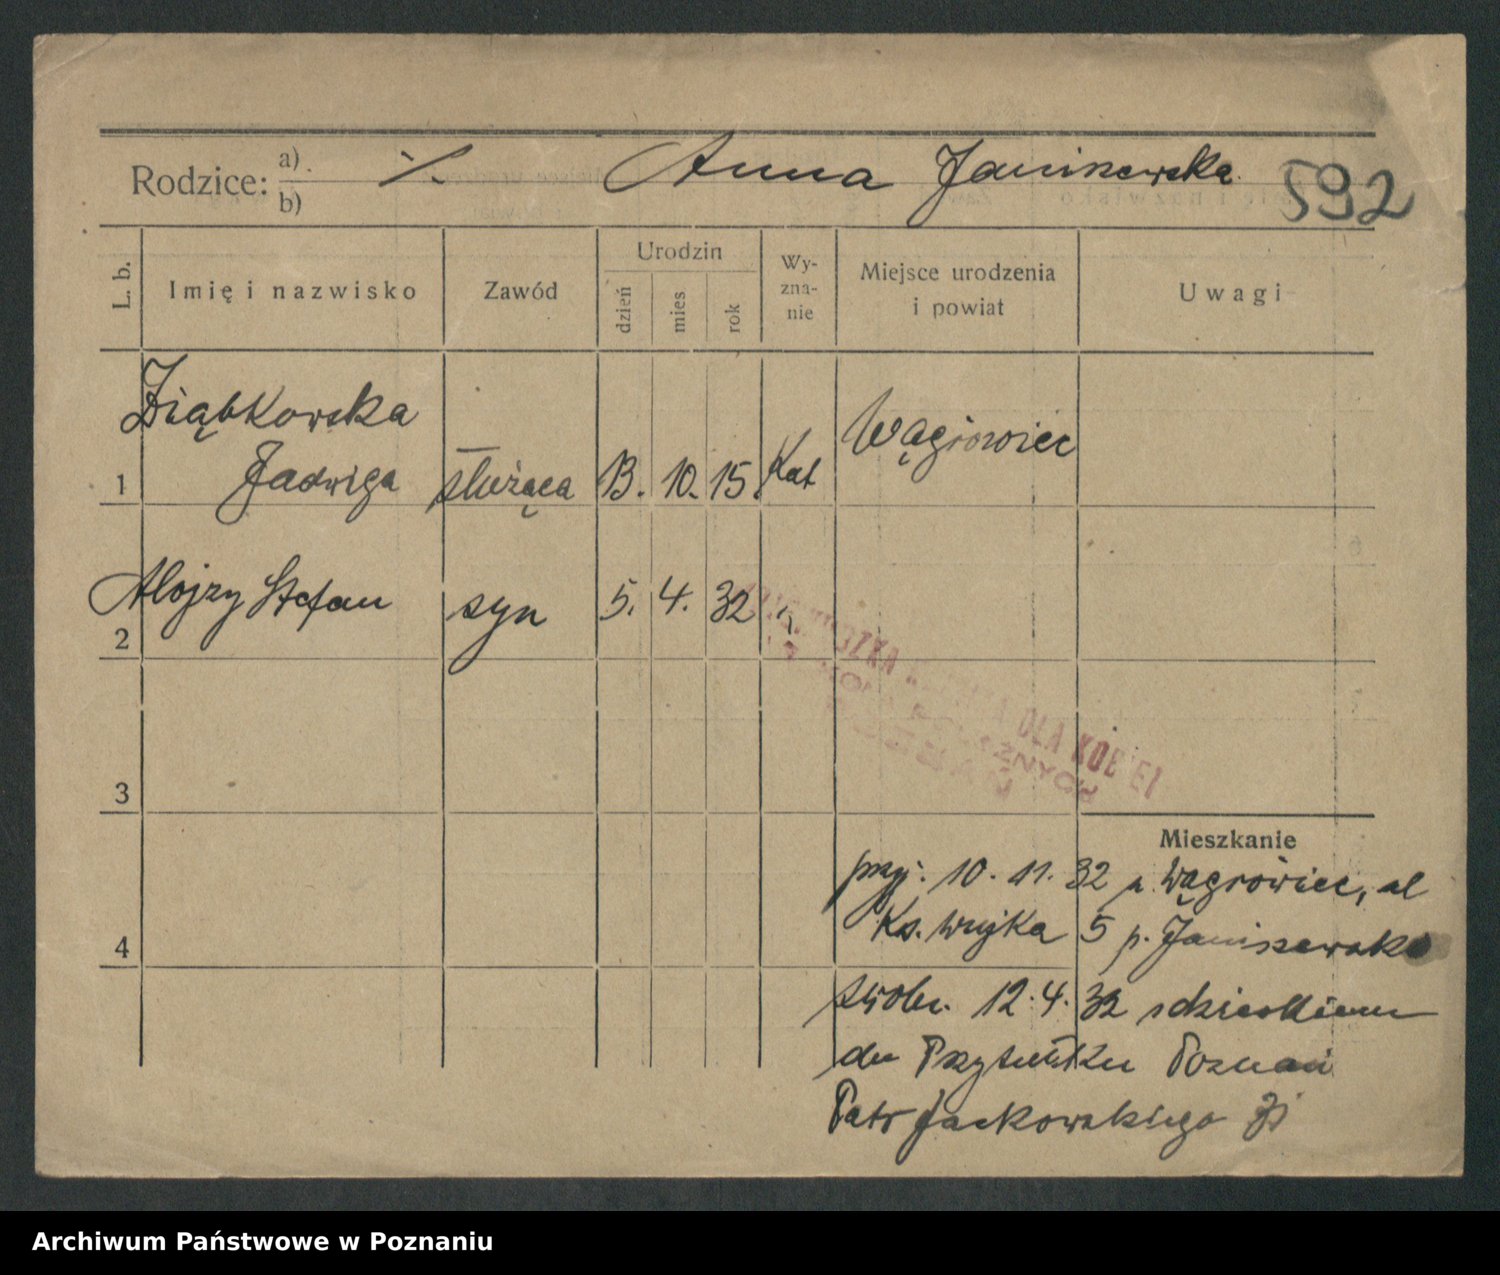 Rodzice: a) ./. Anna Janiszewska 592
b)
L. b. Imię i nazwisko Zawód Urodzin dzień mies rok Wy-zna-nie Miejsce urodzenia i powiat Uwagi
Ziąbkowska
1 Jadwiga służąca 13. 10. 15 Kat Wągrowiec
2 Alojzy Stefan syn 5. 4. 32 k.
DLA KOBIET
3
Mieszkanie
przyj. 10. 11. 32 z Wągrówiec, ul
Ks. Wujka 5 p. Janiszewska
4
12. 4. 32 z dzieckiem
do Przytułku Poznań
Patr Jackowskiego
Archiwum Państwowe w Poznaniu